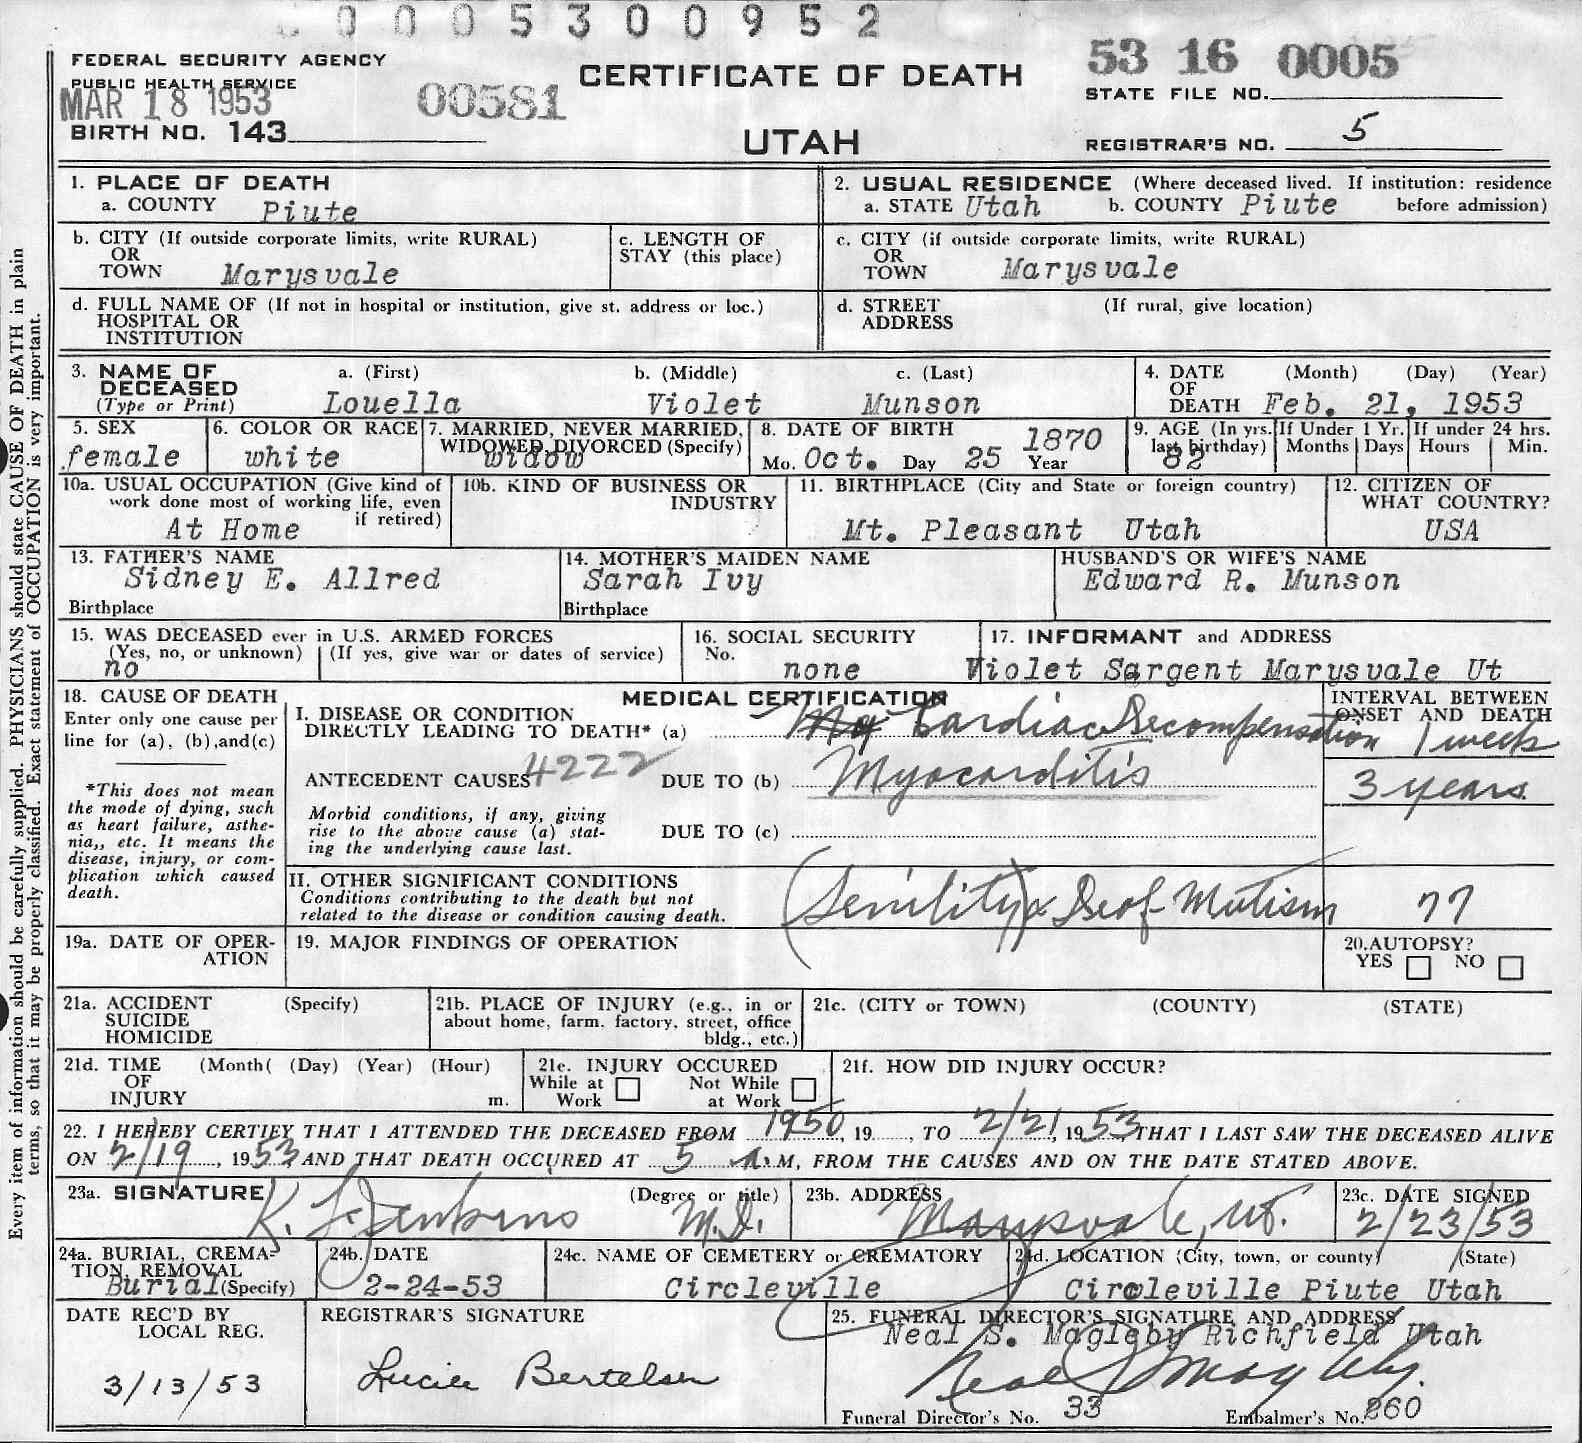 0005300952
FEDERAL SECURITY AGENCY
PUBLIC HEALTH SERVICE
MAR 18 1953
00581
CERTIFICATE OF DEATH
UTAH
53 16 0005
STATE FILE NO.
BIRTH NO. 143
REGISTRAR'S NO. 5
Every item of information should be carefully supplied. PHYSICIANS should state CAUSE OF DEATH in plain
terms, so that it may be properly classified. Exact statement of OCCUPATION is very important.
1. PLACE OF DEATH
a. COUNTY Piute
2. USUAL RESIDENCE (Where deceased lived. If institution: residence
a. STATE Utah b. COUNTY Piute before admission)
b. CITY (If outside corporate limits, write RURAL)
OR
TOWN Marysvale
c. LENGTH OF
STAY (this place)
c. CITY (if outside corporate limits, write RURAL)
OR
TOWN Marysvale
d. FULL NAME OF (If not in hospital or institution, give st. address or loc.)
HOSPITAL OR
INSTITUTION
d. STREET (If rural, give location)
ADDRESS
3. NAME OF a. (First) b. (Middle) c. (Last)
DECEASED
(Type or Print) Louella Violet Munson
4. DATE (Month) (Day) (Year)
OF
DEATH Feb. 21, 1953
5. SEX
female
6. COLOR OR RACE
white
7. MARRIED, NEVER MARRIED,
WIDOWED, DIVORCED (Specify)
widow
8. DATE OF BIRTH 1870
Mo. Oct. Day 25 Year
9. AGE (In yrs. last birthday)
82
If Under 1 Yr.
Months Days
If under 24 hrs.
Hours Min.
10a. USUAL OCCUPATION (Give kind of
work done most of working life, even
if retired)
At Home
10b. KIND OF BUSINESS OR
INDUSTRY
11. BIRTHPLACE (City and State or foreign country)
Mt. Pleasant Utah
12. CITIZEN OF
WHAT COUNTRY?
USA
13. FATHER'S NAME
Sidney E. Allred
Birthplace
14. MOTHER'S MAIDEN NAME
Sarah Ivy
Birthplace
HUSBAND'S OR WIFE'S NAME
Edward R. Munson
15. WAS DECEASED ever in U.S. ARMED FORCES
(Yes, no, or unknown) (If yes, give war or dates of service)
no
16. SOCIAL SECURITY
No.
none
17. INFORMANT and ADDRESS
Violet Sargent Marysvale Ut
18. CAUSE OF DEATH
Enter only one cause per
line for (a), (b), and (c)
*This does not mean
the mode of dying, such
as heart failure, asthe-
nia,, etc. It means the
disease, injury, or com-
plication which caused
death.
MEDICAL CERTIFICATION
INTERVAL BETWEEN
ONSET AND DEATH
I. DISEASE OR CONDITION
DIRECTLY LEADING TO DEATH* (a) Cardiac Decompensation 1 week
ANTECEDENT CAUSES 4222 DUE TO (b) Myocarditis 3 years
Morbid conditions, if any, giving
rise to the above cause (a) stat-
ing the underlying cause last.
DUE TO (c)
II. OTHER SIGNIFICANT CONDITIONS
Conditions contributing to the death but not
related to the disease or condition causing death.
(Senility) & Deaf-Mutism 77
19a. DATE OF OPER-
ATION
19. MAJOR FINDINGS OF OPERATION
20. AUTOPSY?
YES NO
21a. ACCIDENT (Specify)
SUICIDE
HOMICIDE
21b. PLACE OF INJURY (e.g., in or
about home, farm. factory, street, office
bldg., etc.)
21c. (CITY or TOWN) (COUNTY) (STATE)
21d. TIME (Month( (Day) (Year) (Hour)
OF
INJURY m.
21e. INJURY OCCURED
While at Work Not While at Work
21f. HOW DID INJURY OCCUR?
22. I HEREBY CERTIFY THAT I ATTENDED THE DECEASED FROM 1950, 19 , TO 2/21, 1953 THAT I LAST SAW THE DECEASED ALIVE
ON 2/19, 1953 AND THAT DEATH OCCURED AT 5 A.M, FROM THE CAUSES AND ON THE DATE STATED ABOVE.
23a. SIGNATURE (Degree or title)
Jenkins M.D.
23b. ADDRESS
Marysvale, Ut.
23c. DATE SIGNED
2/23/53
24a. BURIAL, CREMA-
TION, REMOVAL
Burial (Specify)
24b. DATE
2-24-53
24c. NAME OF CEMETERY or CREMATORY
Circleville
24d. LOCATION (City, town, or county) (State)
Circleville Piute Utah
DATE REC'D BY
LOCAL REG.
3/13/53
REGISTRAR'S SIGNATURE
Lucile Bertelsen
25. FUNERAL DIRECTOR'S SIGNATURE AND ADDRESS
Neal S. Magleby Richfield Utah
Neal S Magleby.
Funeral Director's No. 33 Embalmer's No. 260